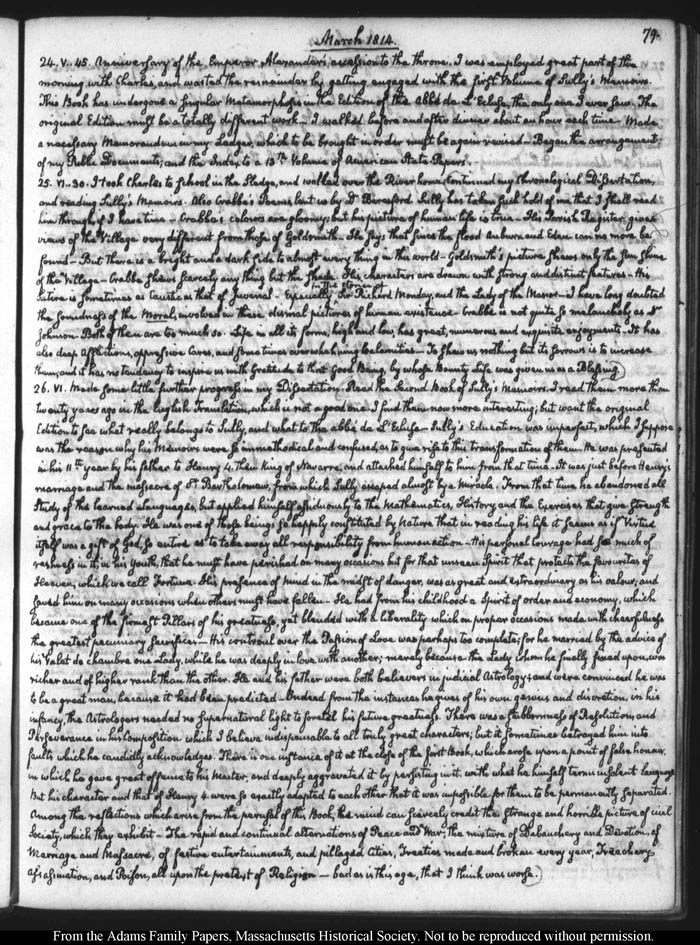 79.
March 1814.
24. V. 45. Anniversary of the Emperor Alexander's accession to the throne. I was employed great part of the
morning with Charles, and wasted the remainder by getting engaged with the first Volume of Sully's Memoirs.
This Book has undergone a singular Metamorphosis in the Edition of the Abbé de L'Ecluse, the only one I ever saw. The
original Edition must be a totally different work. I walked before and after dinner about an hour each time. Made
a necessary Memorandum in my Ledger, which to be brought in order must be again revised. Began the arrangement
of my Public Documents, and the Index, to a 13th. Volume of American State Papers.
25. VI. 30. I took Charles to School in the Sledge, and walked over the River home. Continued my Chronological Dissertation,
and reading Sully's Memoirs. Also Crabbe's Poems lent us by Dr Beresford. Sully has taken such hold of me that I shall read
him through if I have time. Crabbe's colours are gloomy; but his picture of human life is true. His Parish Register gives
views of the Village very different from those of Goldsmith. He says that since the flood Auburn and Eden can no more be
found. But there is a bright and a dark side to almost every thing in this world. Goldsmith's picture shews only the Sun shine
of the Village. Crabbe shews scarcely any thing but the shade. His characters are drawn with strong and distinct features. His
Satire is sometimes as caustic as that of Juvenal. Especially in the stories of Sir Richard Monday, and the Lady of the Manor. I have long doubted
the soundness of the Moral, involved in these dismal pictures of human existence. Crabbe is not quite so melancholy as Dr
Johnson. Both of them are too much so. Life in all its forms, high and low, has great, numerous and exquisite enjoyments. It has
also deep Afflictions, oppressive Cares, and sometimes overwhelming Calamities. To shew us nothing but its sorrows is to increase
them; and it has no tendency to inspire us with Gratitude to that Good Being, by whose Bounty Life was given us as a Blessing)
26. VI. Made some little further progress in my Dissertation. Read the Second Book of Sully's Memoirs. I read them more than
twenty years ago in the English Translation, which is not a good one. I find them now more interesting; but want the original
Edition to see what really belongs to Sully, and what to the abbé de L'Ecluse. Sully's Education was imperfect, which I suppose
was the reason why his Memoirs were so immethodical and confused, as to give rise to this transformation of them. He was presented
in his 11th. year by his father to Henry 4. then King of Navarre, and attached himself to him from that time. It was just before Henry's
marriage and the massacre of St Bartholomew, from which Sully escaped almost by a Miracle. From that time he abandoned all
Study of the learned Languages, but applied himself assiduously to the Mathematics, History and the Exercises that give strength
and grace to the body. He was one of those beings so happily constituted by Nature that in reading his life it seems as if Virtue
itself was a gift of God, so entire as to take away all responsibility from human action. His personal courage had so much of
rashness in it, in his youth, that he must have perished on many occasions but for that unseen Spirit that protects the favourites of
Heaven, which we call Fortune. His presence of mind in the midst of danger, was as great and extraordinary as his valour; and
saved him on many occasions when others must have fallen. He had from his childhood a Spirit of order and economy, which
became one of the firmest Pillars of his greatness, yet blended with a liberality which on proper occasions made with cheerfulness
the greatest pecuniary sacrifices. His controul over the Passion of Love was perhaps too complete; for he married by the advice of
his Valet de chambre one Lady, while he was deeply in love with another; merely because the Lady whom he finally fixed upon, was
richer and of higher rank than the other. He and his father were both believers in judicial Astrology; and were convinced he was
to be a great man, because it had been predicted. Indeed from the instances he gives of his own genius and discretion, in his
infancy, the Astrologers needed no Supernatural light to foretel his future greatness. There was a stubbornness of Resolution, and
Perseverance in his Composition which I believe indispensable to all truly great characters; but it sometimes betrayed him into
faults which he candidly acknowledges. There is one instance of it at the close of the first Book, which arose upon a point of false honour,
in which he gave great offence to his Master, and deeply aggravated it by persisting in it, with what he himself terms insolent language.
But his character and that of Henry 4 were so exactly adapted to each other that it was impossible for them to be permanently separated.
Among the reflections which arise from the perusal of this Book, the mind can scarcely credit the strange and horrible picture of civil
Society, which they exhibit. The rapid and continual alternations of Peace and War; the mixture of Debauchery and Devotion, of
Marriage and Massacre, of festive entertainments, and pillaged Cities, Treaties made and broken every year, Treachery
Assassination, and Poison, all upon the pretext of Religion — bad as is this age, that I think was worse.)
From the Adams Family Papers, Massachusetts Historical Society. Not to be reproduced without permission.